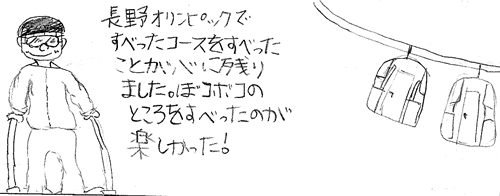 長野オリンピックで
すべったコースをすべった
ことが心に残り
ました。ぼコボコの
ところをすべったのが
楽しかった!